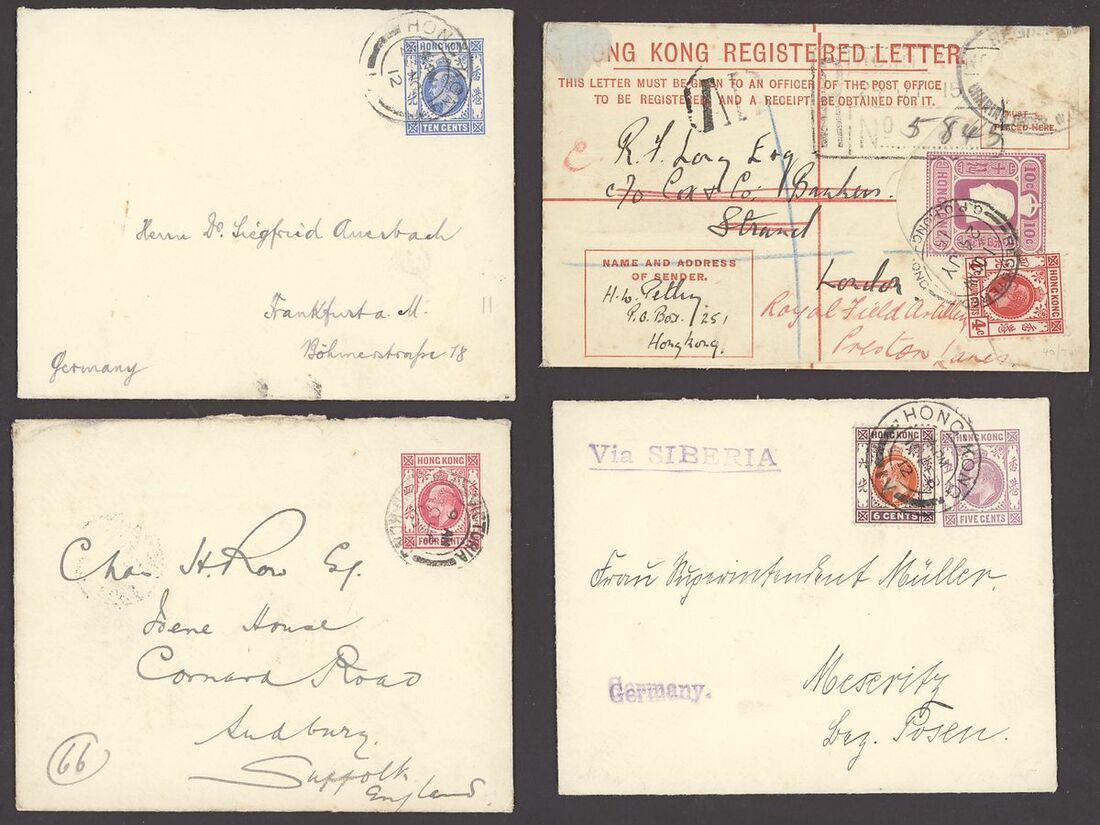 HONG KONG
12
HONG KONG
香港
TEN CENTS
Herrn Dr. Siegfried Auerbach
Frankfurt a. M.
Böhmerstraße 18
Germany
HONG KONG REGISTERED LETTER.
THIS LETTER MUST BE GIVEN TO AN OFFICER OF THE POST OFFICE
TO BE REGISTERED AND A RECEIPT BE OBTAINED FOR IT.
MUST
PLACED HERE.
No 5845
R. F. Long Esq
c/o Cox & Co. Bankers.
Strand
London
Royal Field Artillery
Preston Lancs
NAME AND ADDRESS
OF SENDER.
H. W. Pethy
P.O. Box. 251
Hongkong.
HONG KONG
10c
10c
REGISTERED
G.P.O. HONG KONG
JY
HONG KONG
香港
4c
HONG KONG
四
香港
FOUR CENTS
VICTORIA
Chas. H. Row Esq.
Irene House
Cornard Road
Sudbury.
Suffolk
England
66
Via SIBERIA
HONG KONG
12
HONG KONG
6 CENTS
HONG KONG
香港
FIVE CENTS
Frau Superintendent Müller.
Meseritz
Bez. Posen.
Germany.